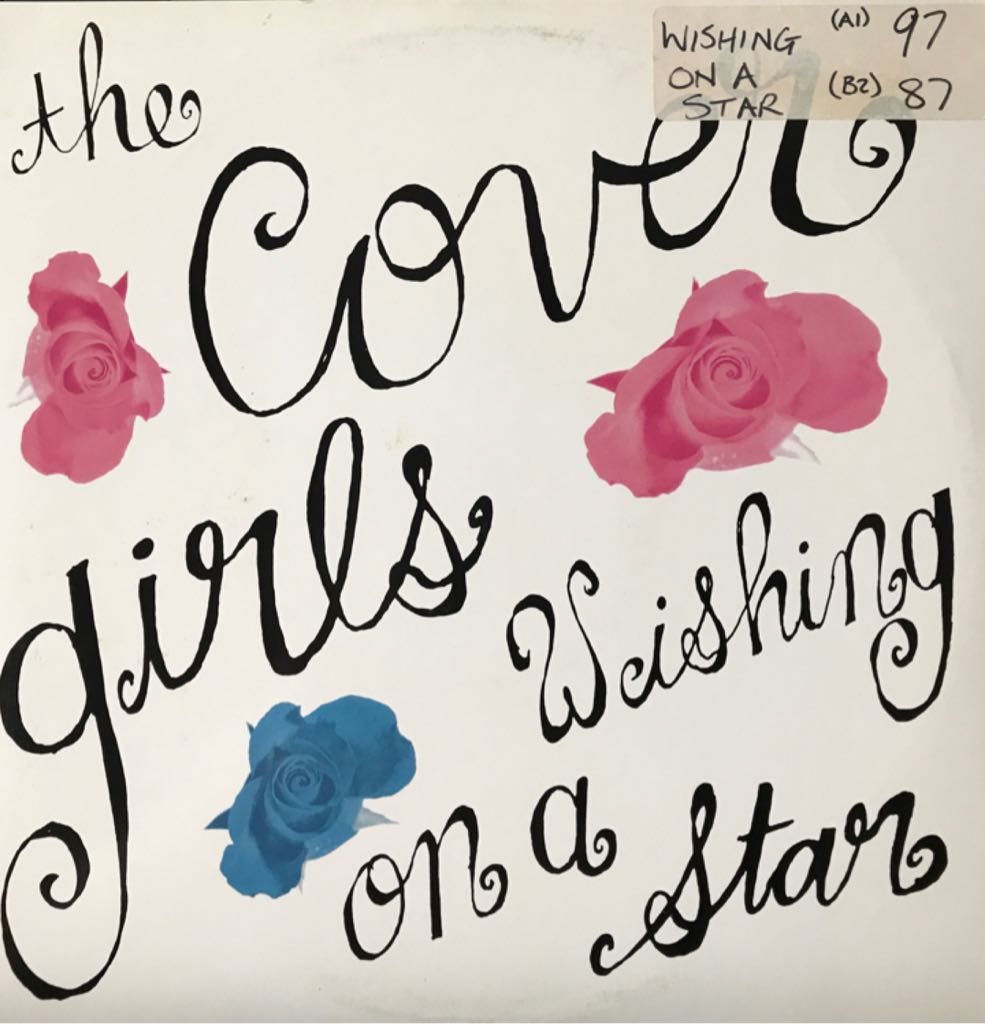 the
Cover
girls
Wishing
on a
Star
WISHING (A1) 97
ON A (B2) 87
STAR